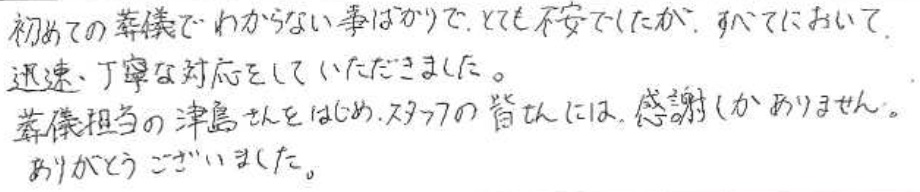 初めての葬儀でわからない事ばかりで、とても不安でしたが、すべてにおいて、
迅速、丁寧な対応をしていただきました。
葬儀担当の津島さんをはじめ、スタッフの皆さんには、感謝しかありません。
ありがとうございました。